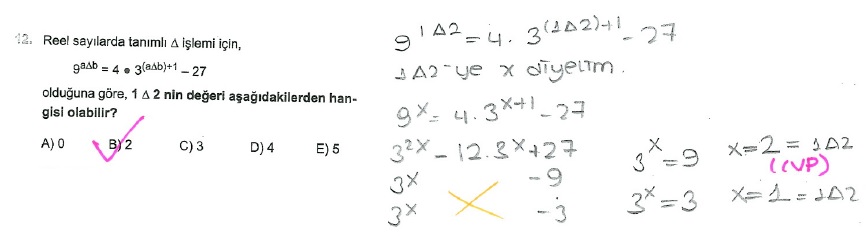 12. Reel sayılarda tanımlı Δ işlemi için,
9^(aΔb) = 4 • 3^((aΔb)+1) – 27
olduğuna göre, 1 Δ 2 nin değeri aşağıdakilerden han-
gisi olabilir?
A) 0 B) 2 C) 3 D) 4 E) 5
9^(1Δ2) = 4 . 3^((1Δ2)+1) - 27
1Δ2-ye x diyelim.
9^x = 4 . 3^(x+1) - 27
3^(2x) - 12.3^x + 27
3^x -9
3^x -3
3^x = 9 x = 2 = 1Δ2
(CVP)
3^x = 3 x = 1 = 1Δ2